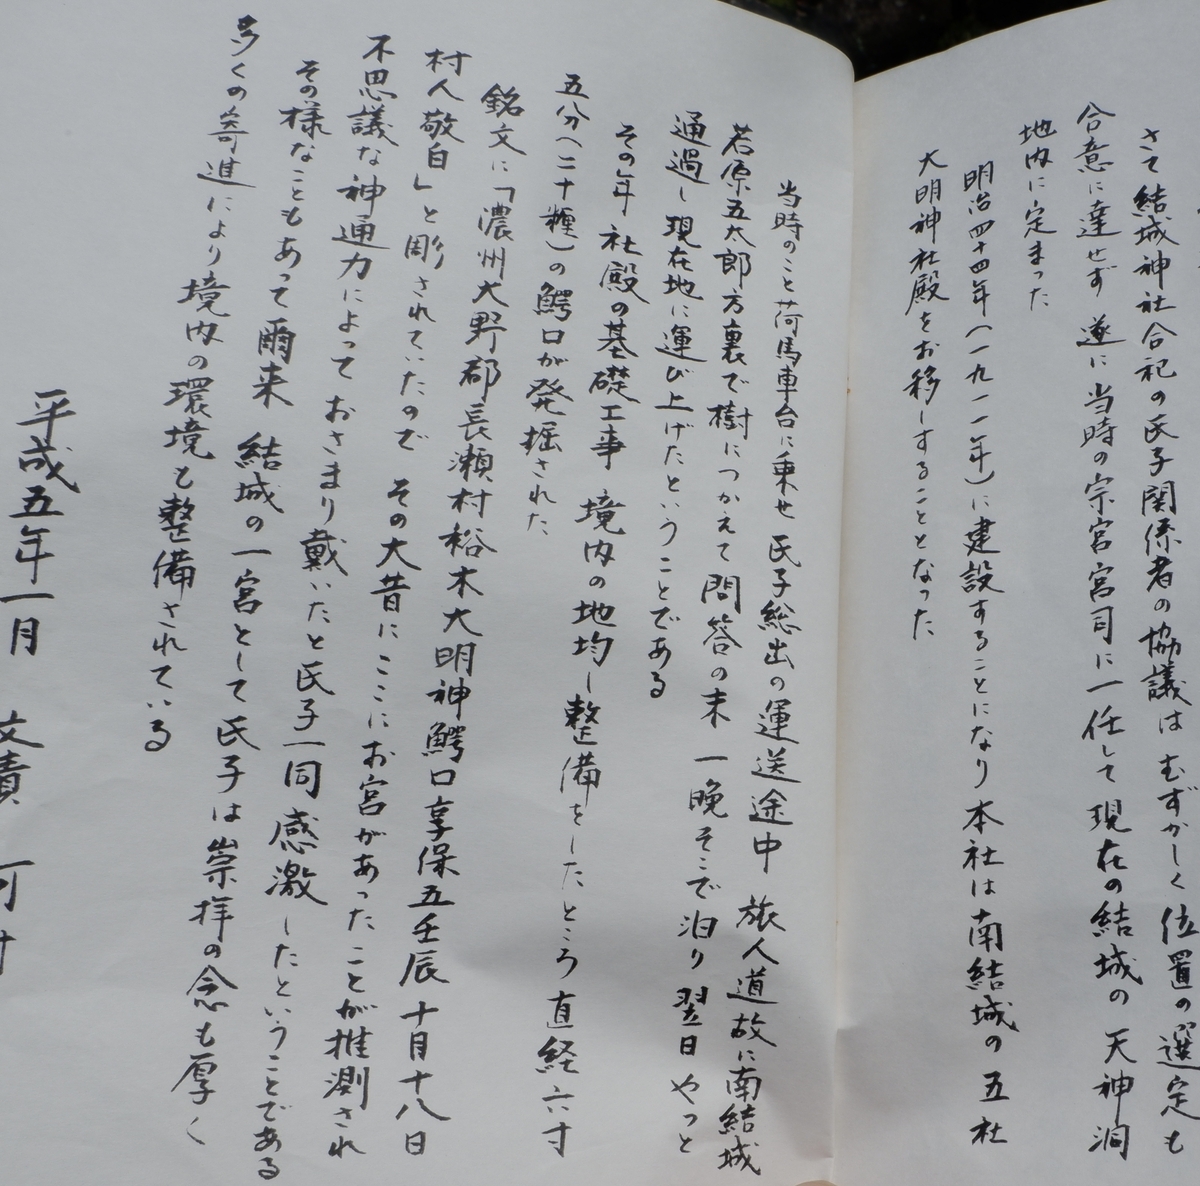 さて結城神社合祀の氏子関係者の協議は むずかしく位置の選定も
合意に達せず 遂に当時の宗宮宮司に一任して現在の結城の天神洞
地内に定まった
明治四十四年(一九一一年)に建設することになり本社は南結城の五社
大明神社殿をお移しすることとなった
当時のこと荷馬車台に乗せ氏子総出の運送途中 旅人道故に南結城
若原五太郎方裏で樹につかえて問答の末 一晩そこで泊り翌日やっと
通過し現在地に運び上げたということである
その年社殿の基礎工事 境内の地均し整備をしたところ直経六寸
五分(二十糎)の鰐口が発掘された
銘文に「濃州大野郡長瀬村裕木大明神鰐口享保五壬辰十月十八日
村人敬白」と彫されていたので その大昔にここにお宮があったことが推測され
不思議な神通力によっておさまり戴いたと氏子一同感激したということである
その様なこともあって爾来 結城の一宮として氏子は崇拝の念も厚く
多くの寄進により境内の環境も整備されている
平成五年一月 文責